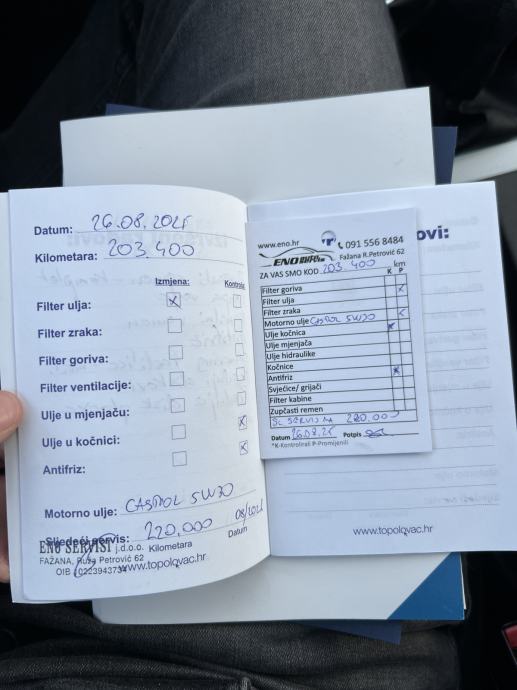 Datum: 26.08.2025
Kilometara: 203.400
Izmjena: Kontrola:
Filter ulja:
Filter zraka:
Filter goriva:
Filter ventilacije:
Ulje u mjenjaču:
Ulje u kočnici:
Antifriz:
Motorno ulje: CASTROL 5W30
Sljedeći servis: 220.000
Kilometara
Datum
ENO SERVISI j.d.o.o.
FAŽANA, Ruža Petrović 62
OIB
www.topolovac.hr
www.eno.hr 091 556 8484
Fažana R.Petrović 62
ZA VAS SMO KOD 203.400 km
K P
Filter goriva
Filter ulja
Filter zraka
Motorno ulje CASTROL 5W30
Ulje kočnica
Ulje mjenjača
Ulje hidraulike
Kočnice
Antifriz
Svjećice/ grijači
Filter kabine
Zupčasti remen
SL SERVIS NA 220.000
Datum 26.08.25 Potpis
*K-Kontrolirali P-Promijenili
ovi:
www.topolovac.hr